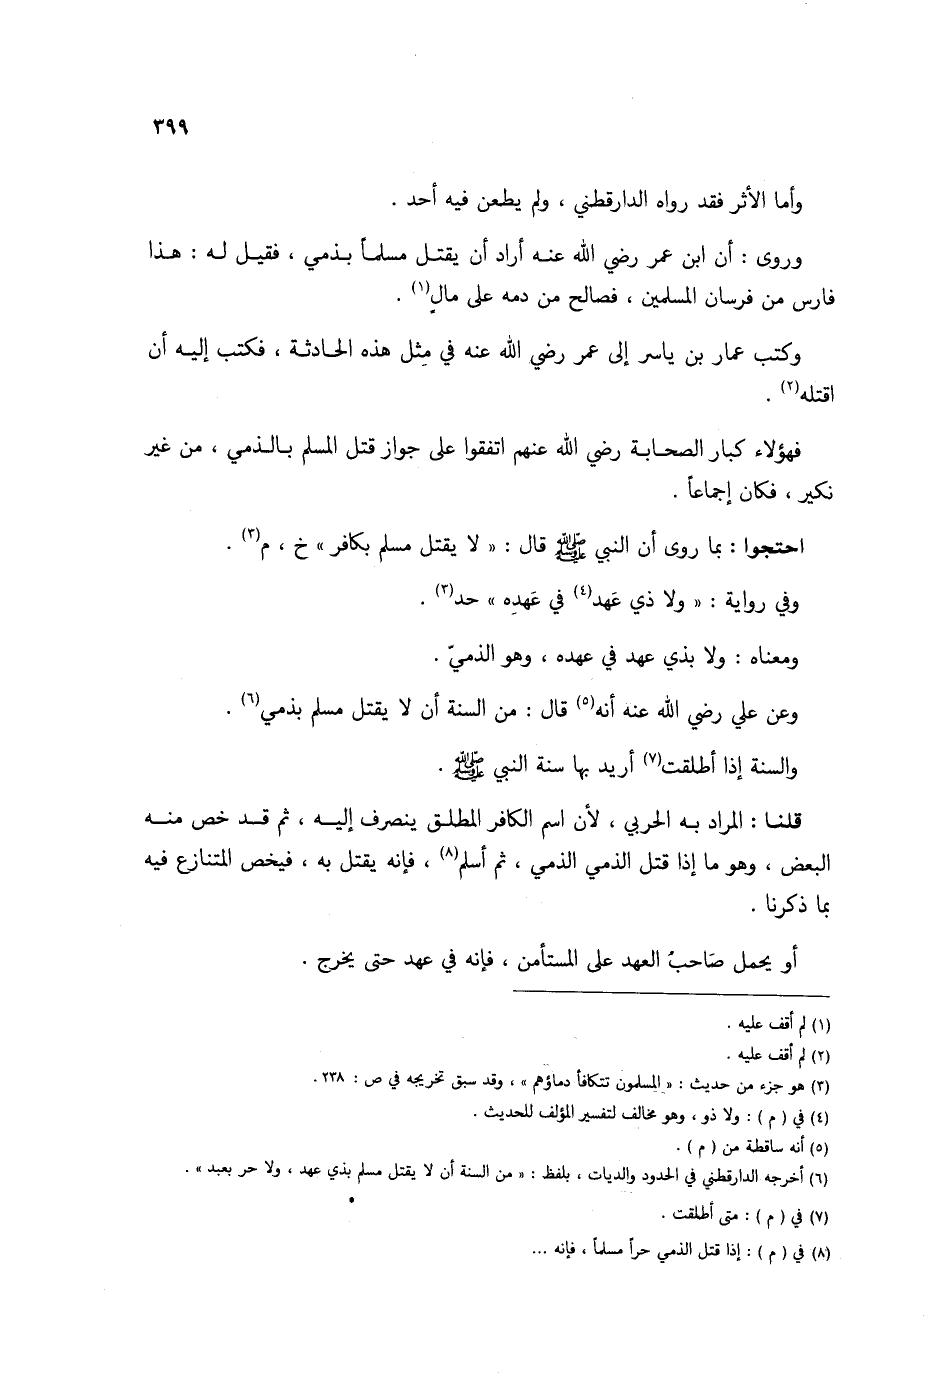 ٣٩٩
وأما الأثر فقد رواه الدارقطني ، ولم يطعن فيه أحد .
وروى : أن ابن عمر رضي الله عنه أراد أن يقتل مسلماً بذمي ، فقيل له : هذا
فارس من فرسان المسلمين ، فصالح من دمه على مالٍ(١) .
وكتب عمار بن ياسر إلى عمر رضي الله عنه في مِثل هذه الحادثة ، فكتب إليه أن
اقتله(٢) .
فهؤلاء كبار الصحابة رضي الله عنهم اتفقوا على جواز قتل المسلم بالذمي ، من غير
نكير ، فكان إجماعاً .
احتجوا : بما روى أن النبي ﷺ قال : « لا يقتل مسلم بكافر » خ ، م(٣) .
وفي رواية : « ولا ذي عَهد(٤) في عَهدِه » حد(٣) .
ومعناه : ولا بذي عهد في عهده ، وهو الذميّ .
وعن علي رضي الله عنه أنه(٥) قال : من السنة أن لا يقتل مسلم بذمي(٦) .
والسنة إذا أطلقت(٧) أريد بها سنة النبي ﷺ .
قلنا : المراد به الحربي ، لأن اسم الكافر المطلق ينصرف إليه ، ثم قد خص منه
البعض ، وهو ما إذا قتل الذمي الذمي ، ثم أسلم(٨) ، فإنه يقتل به ، فيخص المتنازع فيه
بما ذكرنا .
أو يحمل صَاحبُ العهد على المستأمن ، فإنه في عهد حتى يخرج .
(١) لم أقف عليه .
(٢) لم أقف عليه .
(٣) هو جزء من حديث : « المسلمون تتكافأ دماؤهم » ، وقد سبق تخريجه في ص : ٢٣٨ .
(٤) في ( م ) : ولا ذو ، وهو مخالف لتفسير المؤلف للحديث .
(٥) أنه ساقطة من ( م ) .
(٦) أخرجه الدارقطني في الحدود والديات ، بلفظ : « من السنة أن لا يقتل مسلم بذي عهد ، ولا حر بعبد » .
(٧) في ( م ) : متى أطلقت .
(٨) في ( م ) : إذا قتل الذمي حراً مسلماً ، فإنه ...